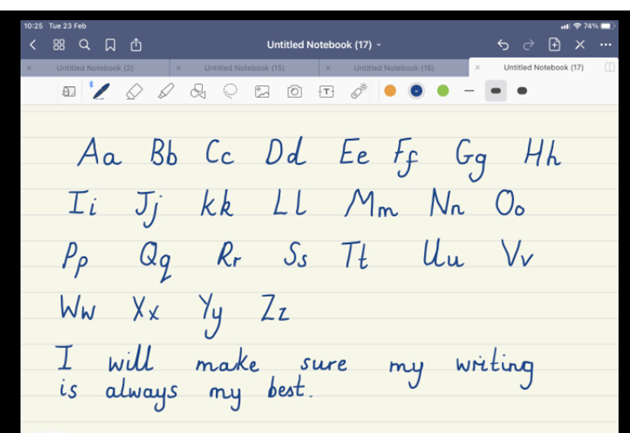 10:25 Tue 23 Feb 74%
Untitled Notebook (17)
Untitled Notebook (2) Untitled Notebook (15) Untitled Notebook (16) Untitled Notebook (17)
T
Aa Bb Cc Dd Ee Ff Gg Hh
Ii Jj kk Ll Mm Nn Oo
Pp Qq Rr Ss Tt Uu Vv
Ww Xx Yy Zz
I will make sure my writing
is always my best.